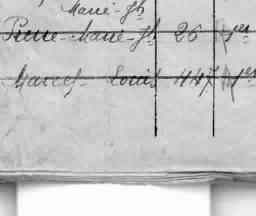 Marie-Jh
Pierre-Marie-Jh 26 1er
Marcel Louis 447 1er